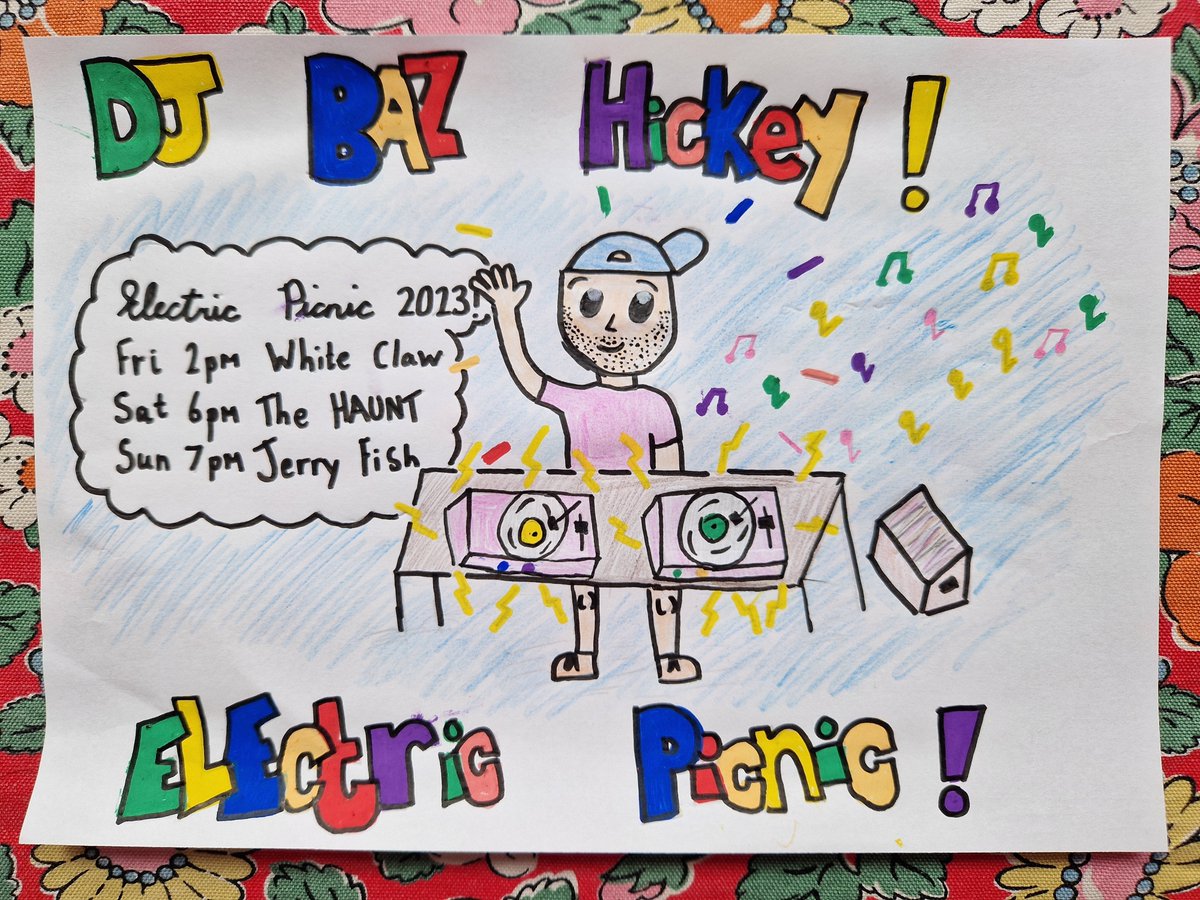 DJ BAZ HicKey !
Electric Picnic 2023!
Fri 2pm White Claw
Sat 6pm The HAUNT
Sun 7pm Jerry Fish
ELEctric Picnic !